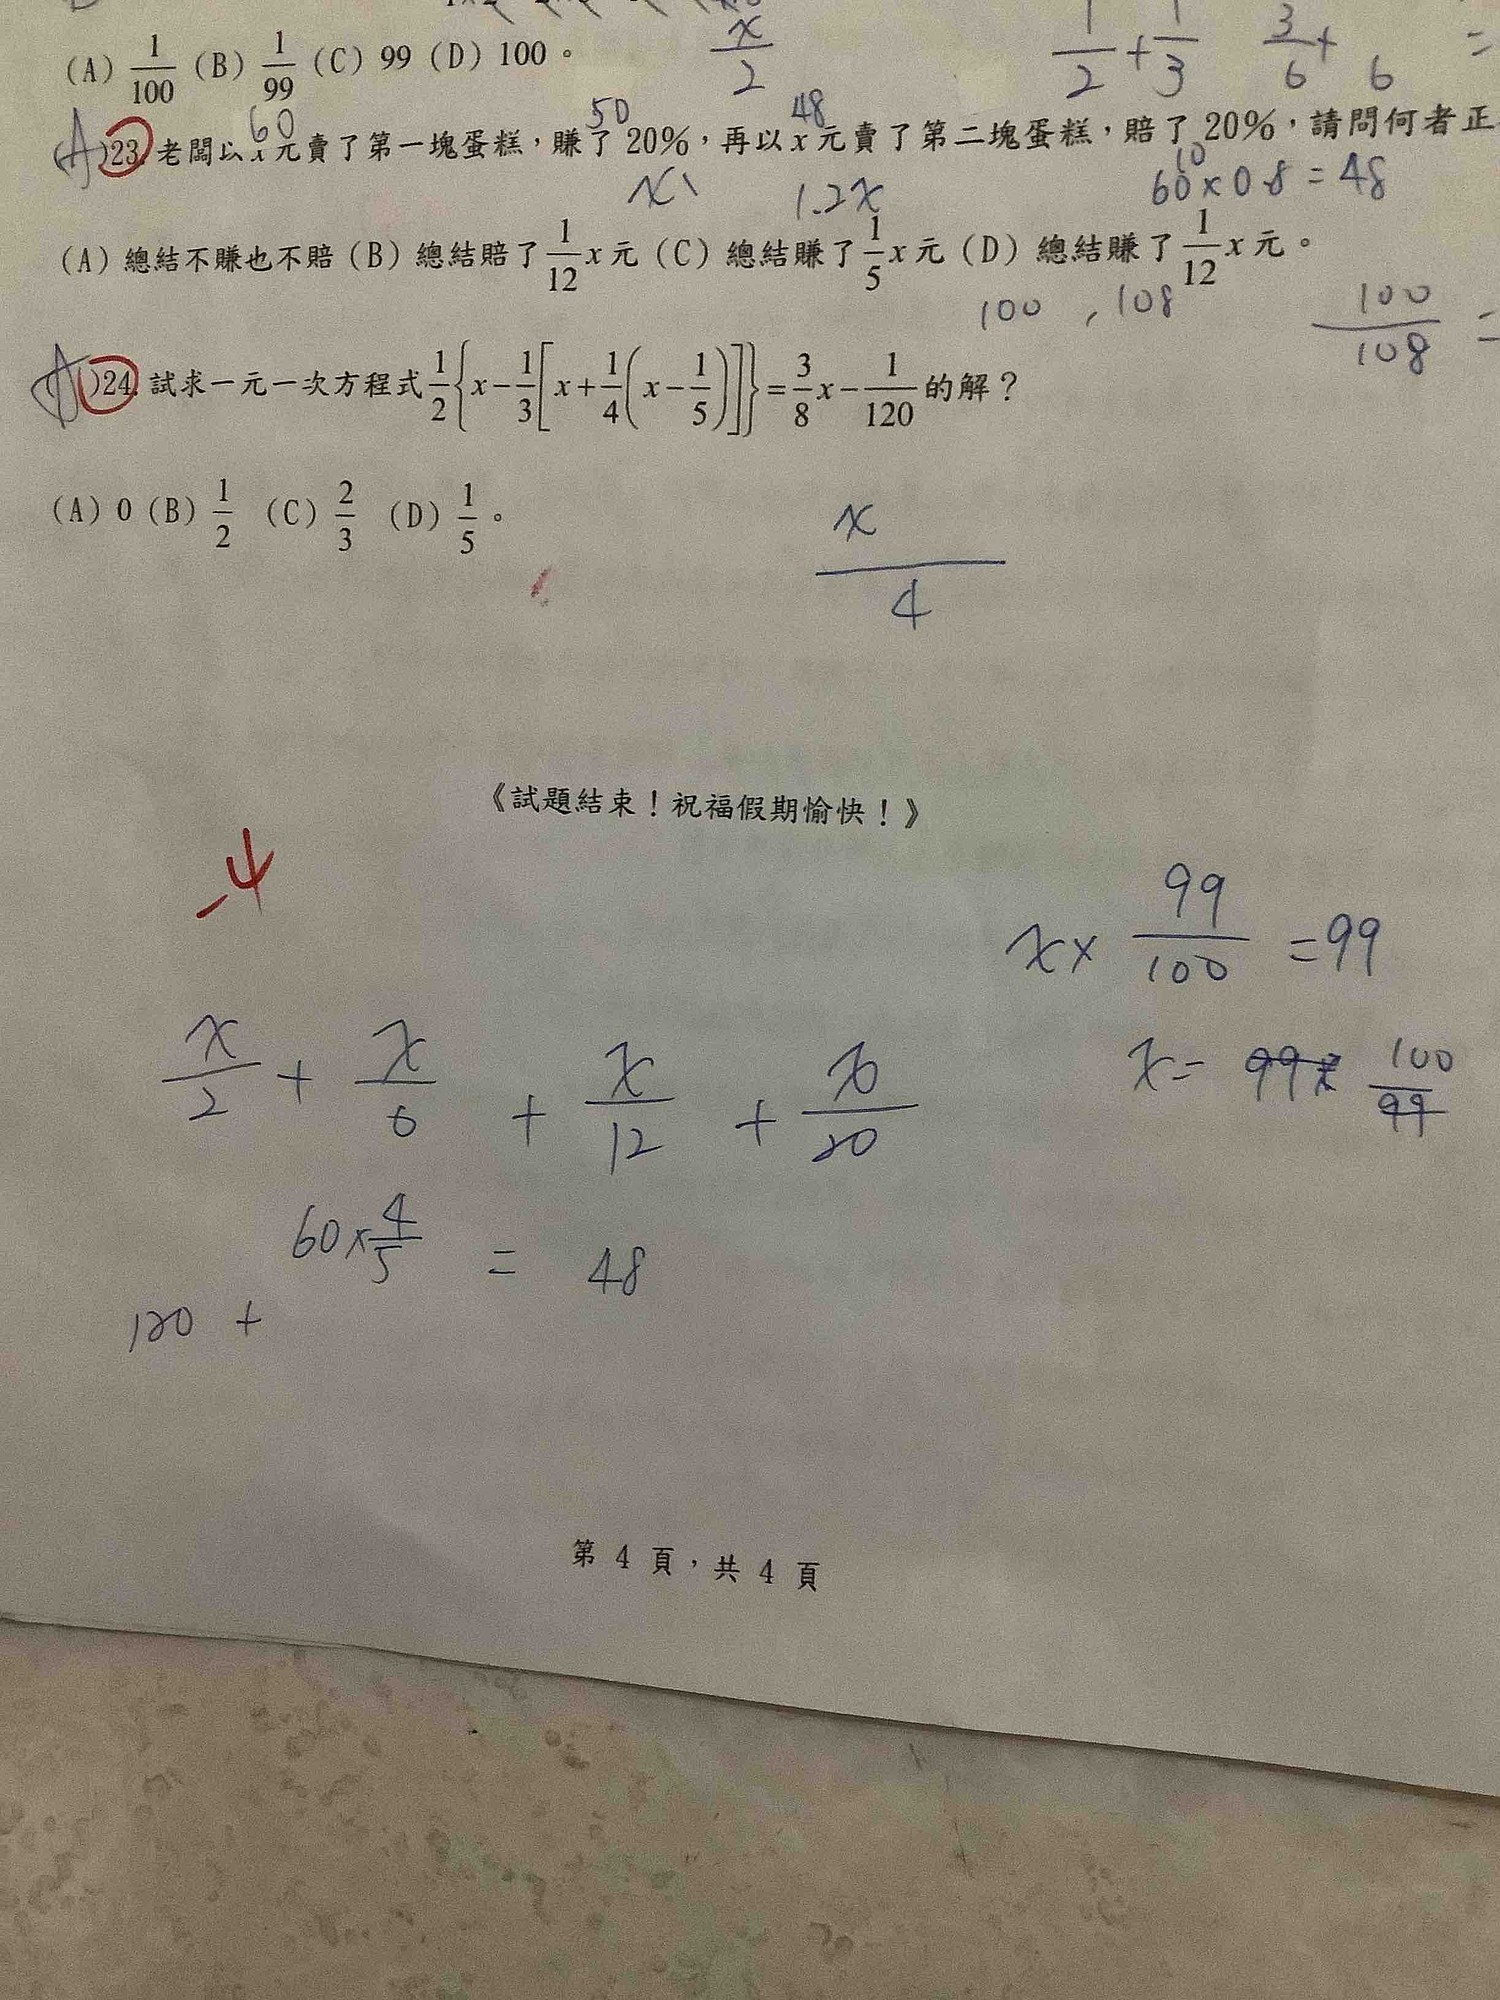 x/2
1/2 + 1/3 3/6 + 6 =
(A) 1/100 (B) 1/99 (C) 99 (D) 100。
60 50 48
(A)23. 老闆以 x 元賣了第一塊蛋糕，賺了 20%，再以 x 元賣了第二塊蛋糕，賠了 20%，請問何者正
x 1.2x 60×0.8=48
10
(A) 總結不賺也不賠 (B) 總結賠了 1/12 x 元 (C) 總結賺了 1/5 x 元 (D) 總結賺了 1/12 x 元。
100 , 108 100/108 =
(A)24. 試求一元一次方程式 1/2{x-1/3[x+1/4(x-1/5)]}=3/8x-1/120 的解？
(A) 0 (B) 1/2 (C) 2/3 (D) 1/5。
x/4
《試題結束！祝福假期愉快！》
-4
x× 99/100 =99
x/2 + x/6 + x/12 + x/20
x= 99× 100/99
60×4/5 = 48
120 +
第 4 頁，共 4 頁